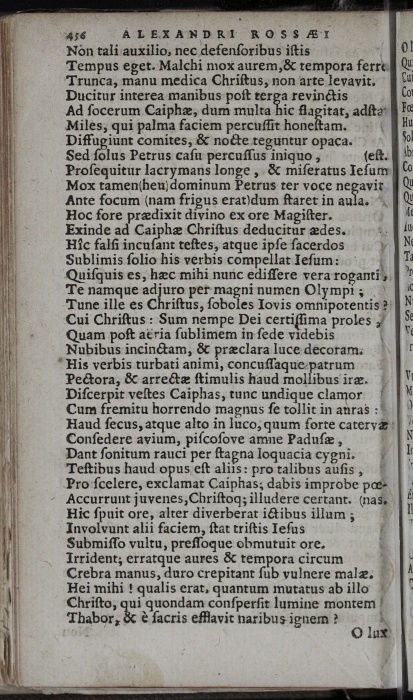 456 ALEXANDRI ROSSÆI
Non tali auxilio, nec defensoribus istis
Tempus eget. Malchi mox aurem, & tempora ferre
Trunca, manu medica Christus, non arte levavit.
Ducitur interea manibus post terga revinctis
Ad socerum Caiphæ, dum multa hic flagitat, adsta
Miles, qui palma faciem percussit honestam.
Diffugiunt comites, & nocte teguntur opaca.
Sed solus Petrus casu percussus iniquo, (est.
Prosequitur lacrymans longe, & miseratus Iesum
Mox tamen (heu) dominum Petrus ter voce negavit
Ante focum (nam frigus erat) dum staret in aula.
Hoc fore prædixit divino ex ore Magister.
Exinde ad Caiphæ Christus deducitur ædes.
Hîc falsi incusant testes, atque ipse sacerdos
Sublimis solio his verbis compellat Iesum:
Quisquis es, hæc mihi nunc edissere vera roganti,
Te namque adjuro per magni numen Olympi;
Tune ille es Christus, soboles Iovis omnipotentis?
Cui Christus: Sum nempe Dei certissima proles,
Quam post aëria sublimem in sede videbis
Nubibus incinctam, & præclara luce decoram.
His verbis turbati animi, concussaque patrum
Pectora, & arrectæ stimulis haud mollibus iræ.
Discerpit vestes Caiphas, tunc undique clamor
Cum fremitu horrendo magnus se tollit in auras:
Haud secus, atque alto in luco, quum forte catervæ
Consedere avium, piscosove amne Padusæ,
Dant sonitum rauci per stagna loquacia cygni.
Testibus haud opus est aliis: pro talibus ausis,
Pro scelere, exclamat Caiphas; dabis improbe pœ-
Accurrunt juvenes, Christoq; illudere certant. (nas.
Hic spuit ore, alter diverberat ictibus illum;
Involvunt alii faciem, stat tristis Iesus
Submisso vultu, pressoque obmutuit ore.
Irrident; erratque aures & tempora circum
Crebra manus, duro crepitant sub vulnere malæ.
Hei mihi! qualis erat, quantum mutatus ab illo
Christo, qui quondam conspersit lumine montem
Thabor, & è sacris efflavit naribus ignem?
O lux